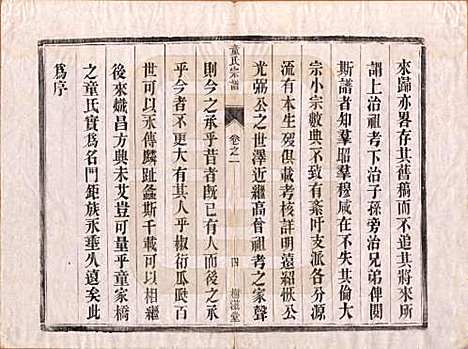 來歸亦畧存其舊稿而不追其將來所
謂上治祖考下治子孫旁治兄弟俾閱
斯譜者知羣昭羣穆咸在不失其倫大
宗小宗數典不致有紊吁支派各分源
流有本生歿俱載考核詳明遠紹
公之世澤近繼高曾祖考之家聲
光弼
童氏宗譜
卷之一
四
樹滋堂
則今之承乎昔者既已無忝後之承
乎今者不更大有其人乎椒衍瓜瓞百
世可以永傳麟趾螽斯千載可以相繼
後來熾昌方興未艾豈可量乎童家橋
之童氏實為名門鉅族永垂久遠矣此
為序